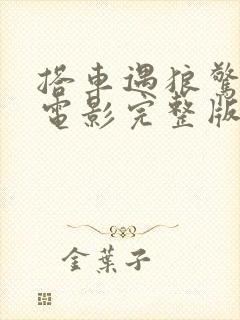 搭車遇狼驚
電影完整版
金葉子